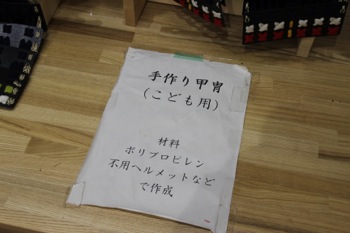 手作り甲冑
(こども用)
材料
ポリプロピレン
不用ヘルメットなど
で作成